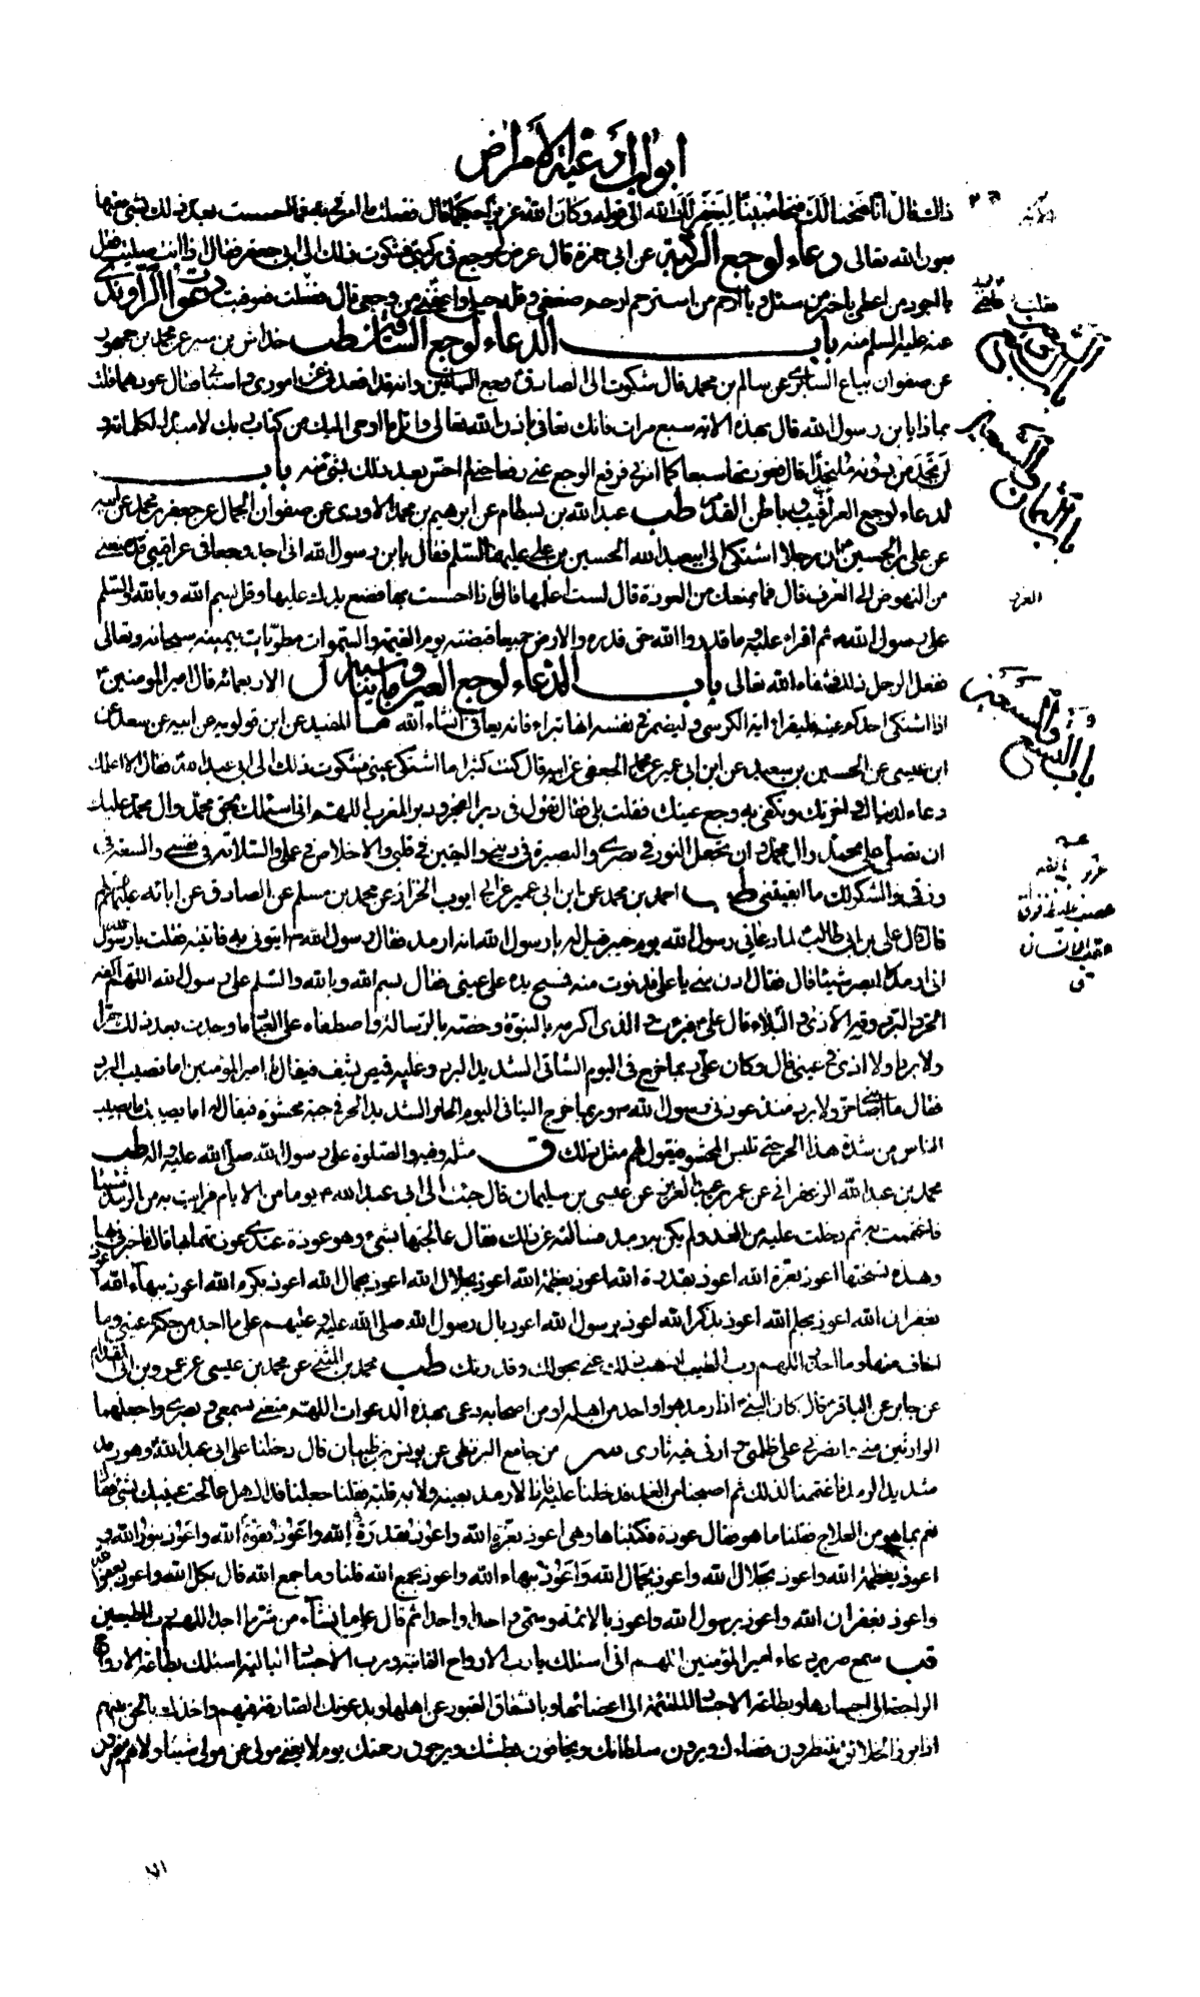 ابواب ادعية الأمراض
ذلك قال انا فتحنا لك فتحا مبينا ليغفر لك الله الى قوله وكان الله عزيزا حكيما قال ففعلت ما امرني به فما احسست بعد ذلك بشئ منها
بعون الله تعالى دعاء لوجع الركبة عن ابي حمزة قال عرض لي وجع في ركبتي فشكوت ذلك الى ابي جعفر فقال اذا انت صليت فقل
يا اجود من اعطى يا خير من سئل ويا ارحم من استرحم ارحم ضعفي وقلة حيلتي واعفني من وجعي قال ففعلت فعوفيت دعوات الراوندي
عنه عليه السلم مثله باب الدعاء لوجع الساقين طب خداش بن سبرة عن محمد بن جمهور
عن صفوان بياع السابري عن سالم بن محمد قال شكوت الى الصادق وجع الساقين وانه قد اقعدني عن اموري واسبابي فقال عوذهما قلت
بماذا يا بن رسول الله قال بهذه الاية سبع مرات فانك تعافى باذن الله تعالى واتل ما اوحي اليك من كتاب ربك لا مبدل لكلماته و
لن تجد من دونه ملتحدا قال فعوذتها سبعا كما امرني فرفع الوجع عني رفعا حتى لم احس بعد ذلك بشئ منه باب
الدعاء لوجع العراقيب وباطن القدم طب عبد الله بن بسطام عن ابرهيم بن محمد الاودي عن صفوان الجمال عن جعفر بن محمد عن ابيه
عن علي بن الحسين ان رجلا اشتكى الى ابي عبد الله الحسين بن علي عليهما السلم فقال يا بن رسول الله اني اجد وجعا في عراقيبي قد منعني
من النهوض الى الغرف قال فما يمنعك من العوذة قال لست اعلمها قال فاذا احسست بها فضع يدك عليها وقل بسم الله وبالله والسلم
على رسول الله ثم اقراء عليه وما قدروا الله حق قدره والارض جميعا قبضته يوم القيمة والسموات مطويات بيمينه سبحانه وتعالى
ففعل الرجل ذلك فشفاه الله تعالى باب الدعاء لوجع العين وما يناسبه ل الاربعمائة قال امير المومنين
اذا اشتكى احدكم عينه فليقراء اية الكرسي وليضمر في نفسه انها تبراء فانه يعافى انشاء الله ما المفيد عن ابن قولويه عن ابيه عن سعد عن
ابن عيسى عن الحسين بن سعيد عن ابن ابي عمير عن محمد الجعفي عن ابيه قال كنت كثيرا ما اشتكي عيني فشكوت ذلك الى ابي عبد الله فقال الا اعلمك
دعاء لدنياك واخرتك وتكفى به وجع عينك فقلت بلى فقال تقول في دبر الفجر ودبر المغرب اللهم اني اسئلك بحق محمد وال محمد عليك
ان تصلي على محمد وال محمد وان تجعل النور في بصري والبصيرة في ديني واليقين في قلبي والاخلاص في عملي والسلامة في نفسي والسعة في
رزقي والشكر لك ما ابقيتني طب احمد بن محمد عن ابن ابي عمير عن ابي ايوب الخزاز عن محمد بن مسلم عن الصادق عن ابائه عليهم السلم
قال قال علي بن ابي طالب لما دعاني رسول الله يوم خيبر قيل له يا رسول الله انه ارمد فقال رسول الله ايتوني به فاتيته فقلت يا رسول الله
اني ارمد لا ابصر شيئا قال فقال ادن مني يا علي فدنوت منه فمسح يده على عيني فقال بسم الله وبالله والسلم على رسول الله اللهم اكفه
الحر والبرد وقه الاذى والبلاء قال علي فبرئت والذي اكرمه بالنبوة وخصه بالرسالة واصطفاه على العباد ما وجدت بعد ذلك حرا
ولا بردا ولا اذى في عيني قال وكان علي ربما خرج في اليوم الشاتي الشديد البرد وعليه قميص شف فيقال يا امير المومنين اما تصيب البرد
فقال ما اصابني حر ولا برد منذ عوذني رسول الله وربما خرج الينا في اليوم الحار الشديد الحر في جبة محشوة فيقال له اما يصيبك ما يصيب
الناس من شدة هذا الحر حتى تلبس المحشو فيقول لهم مثل ذلك ق مثله وفيه والصلوة على رسول الله صلى الله عليه واله طب
محمد بن عبد الله الزعفراني عن عمر بن عبد العزيز عن عيسى بن سليمان قال جئت الى ابي عبد الله يوما من الايام فرايت به من الرمد شيئا
فاغتممت به ثم دخلت عليه من الغد ولم يكن به رمد فسالته عن ذلك فقال عالجتها بشئ وهو عوذة عندي عوذتها بها قال فاخبرني بها
وهذه نسختها اعوذ بعزة الله اعوذ بقدرة الله اعوذ بعظمة الله اعوذ بجلال الله اعوذ بجمال الله اعوذ بكرم الله اعوذ ببهاء الله اعوذ
بغفران الله اعوذ بحلم الله اعوذ بذكر الله اعوذ برسول الله اعوذ بال رسول الله صلى الله عليه وعليهم على ما اجد من حكة عيني وما
اخاف منها وما احذر اللهم رب الطيبين اذهب ذلك عني بحولك وقدرتك طب محمد بن المثنى عن محمد بن عيسى عن عمرو بن ابي المقدام
عن جابر عن الباقر قال كان النبي اذا رمد هو او احد من اهله او من اصحابه دعى بهذه الدعوات اللهم متعني بسمعي وبصري واجعلهما
الوارثين مني وانصرني على من ظلمني وارني فيه ثاري سر من جامع البزنطي عن يونس بن ظبيان قال دخلنا على ابي عبد الله وهو رمد
شديد الرمد فاغتممنا لذلك ثم اصبحنا من الغد فدخلنا عليه فاذا لا رمد بعينه ولا به قلبة فقلنا جعلنا فداك هل عالجت عينيك بشئ فقال
نعم بما هو من العلاج فقلنا ما هو فقال عوذة فكتبناها وهي اعوذ بعزة الله واعوذ بقدرة الله واعوذ بقوة الله واعوذ بنور الله و
اعوذ بعظمة الله واعوذ بجلال الله واعوذ بجمال الله واعوذ ببهاء الله واعوذ بجمع الله قلنا وما جمع الله قال بكل الله واعوذ بعفو الله
واعوذ بغفران الله واعوذ برسول الله واعوذ بالائمة وسمى واحدا واحدا ثم قال على ما نشاء من شر ما اجد اللهم رب المطيعين
قب سمع ضرير دعاء امير المؤمنين اللهم اني اسئلك يا رب الارواح الفانية ورب الاجساد البالية اسئلك بطاعة الارواح
الراجعة الى اجسادها وبطاعة الاجساد الملتئمة الى اعضائها وبانشقاق القبور عن اهلها وبدعوتك الصادقة فيهم واخذك بالحق بينهم
اذا برز الخلائق ينتظرون قضاءك ويرون سلطانك ويخافون بطشك ويرجون رحمتك يوم لا يغني مولى عن مولى شيئا ولا هم ينصرون
باب السابع والسبعين
باب الثمان والسبعين
باب التسع والسبعين
٧١